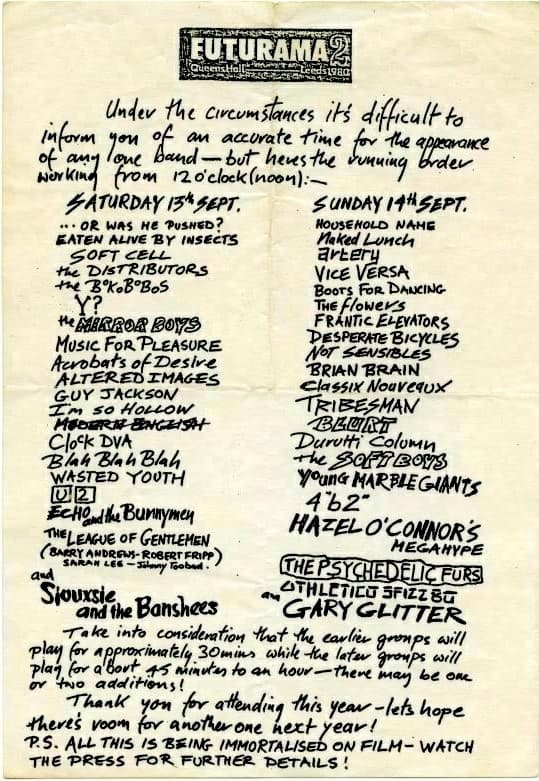 FUTURAMA 2
Queens Hall Leeds 1980
Under the circumstances it's difficult to
inform you of an accurate time for the appearance
of any one band — but heres the running order
working from 12 o'clock (noon):—
SATURDAY 13th SEPT.
... OR WAS HE PUSHED?
EATEN ALIVE BY INSECTS
SOFT CELL
the DISTRIBUTORS
the BOKOBOBOS
Y?
the MIRROR BOYS
MUSIC FOR PLEASURE
Acrobats of Desire
ALTERED IMAGES
GUY JACKSON
I'm SO HOLLOW
MODERN ENGLISH
Clock DVA
Blah Blah Blah
WASTED YOUTH
U2
ECHO and the Bunnymen
THE LEAGUE OF GENTLEMEN
(BARRY ANDREWS - ROBERT FRIPP)
SARAH LEE - Johnny Toobad.
and
Siouxsie
and the Banshees
SUNDAY 14th SEPT.
HOUSEHOLD NAME
Naked Lunch
artery
VICE VERSA
BOOTS FOR DANCING
THE flowers
FRANTIC ELEVATORS
DESPERATE BICYCLES
NOT SENSIBLES
BRIAN BRAIN
Classix Nouveaux
TRIBESMAN
BLURT
Durutti Column
the SOFT BOYS
YOUNG MARBLE GIANTS
4"be2"
HAZEL O'CONNOR'S
MEGAHYPE
THE PSYCHEDELIC FURS
ATHLETICO SPIZZ 80
an GARY GLITTER
Take into consideration that the earlier groups will
play for approximately 30 mins while the later groups will
play for about 45 minutes to an hour — there may be one
or two additions!
Thank you for attending this year — lets hope
there's room for another one next year!
P.S. ALL THIS IS BEING IMMORTALISED ON FILM — WATCH
THE PRESS FOR FURTHER DETAILS!